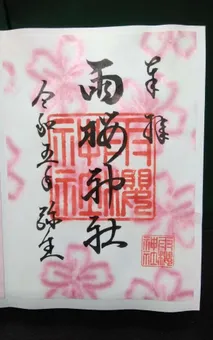 奉拝
雨櫻神社
令和五年 弥生
雨櫻神社
雨櫻神社